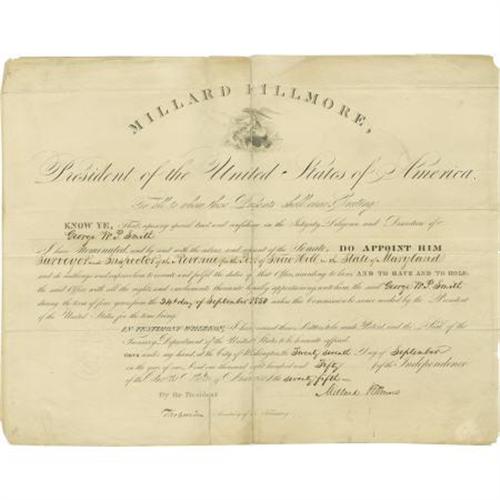 MILLARD FILLMORE,
President of the United States of America.
To all to whom these Presents shall come, Greeting:
KNOW YE, That reposing special trust and confidence in the Integrity, Diligence and Discretion of
George W. P. Smith
I have Nominated, and by and with the advice and consent of the Senate, DO APPOINT HIM
Surveyor and Inspector of the Revenue for the Port of Snow Hill in the State of Maryland
and do authorize and empower him to execute and fulfil the duties of that Office according to law AND TO HAVE AND TO HOLD
the said Office with all the rights and emoluments thereunto legally appertaining unto him the said George W. P. Smith
during the term of four years from the 24th day of September 1850 unless this Commission be sooner revoked by the President
of the United States for the time being.
IN TESTIMONY WHEREOF, I have caused these Letters to be made Patent, and the Seal of the
Treasury Department of the United States to be hereunto affixed.
GIVEN under my hand, at the City of Washington the Twenty seventh Day of September
in the year of our Lord one thousand eight hundred and Fifty
of the United States of America the seventy fifth
by the Independence
By the President
Millard Fillmore
Secretary of the Treasury